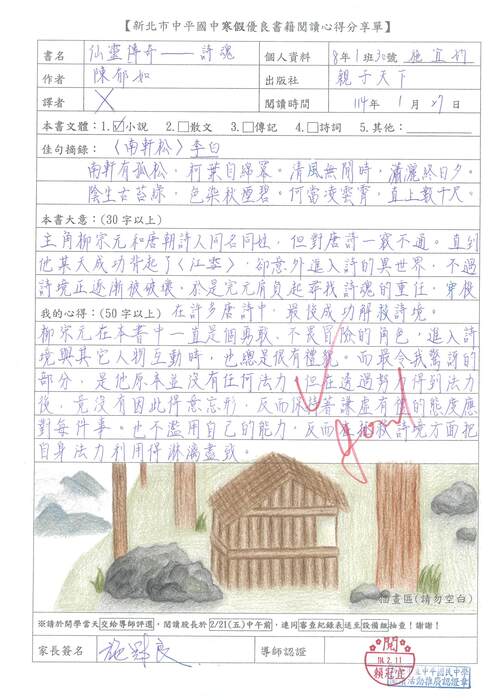 【新北市中平國中寒假優良書籍閱讀心得分享單】
書名 仙靈傳奇——詩魂 個人資料 8年1班30號 施宜均
作者 陳郁如 出版社 親子天下
譯者 ╳ 閱讀時間 114年1月27日
本書文體：1.☑小說 2.□散文 3.□傳記 4.□詩詞 5.其他：
佳句摘錄：〈南軒松〉李白
南軒有孤松，柯葉自綿冪。清風無閒時，瀟灑終日夕。
陰生古苔綠，色染秋煙碧。何當凌雲霄，直上數千尺。
本書大意：(30字以上)
主角柳宗元和唐朝詩人同名同姓，但對唐詩一竅不通。直到
他某天成功背起了〈江雪〉，卻意外進入詩的異世界，不過
詩境正逐漸被破壞，於是宗元肩負起尋找詩魂的重任，穿梭
在許多唐詩中，最後成功解救詩境。
我的心得：(50字以上)
柳宗元在本書中一直是個勇敢、不畏冒險的角色，進入詩
境與其它人物互動時，也總是很有禮貌。而最令我驚訝的
部分，是他原本並沒有任何法力，但在透過努力得到法力
後，竟沒有因此得意忘形，反而保持著謙虛有禮的態度應
對每件事。也不濫用自己的能力，反而在拯救詩境方面把
自身法力利用得淋漓盡致。
good
插畫區(請勿空白)
※請於開學當天交給導師評選，閱讀股長於2/21(五)中午前，連同審查紀錄表送至設備組抽查！謝謝！
家長簽名 導師認證
閱
114.2.11
賴冠宜
中平國民中學
活動推廣認證章